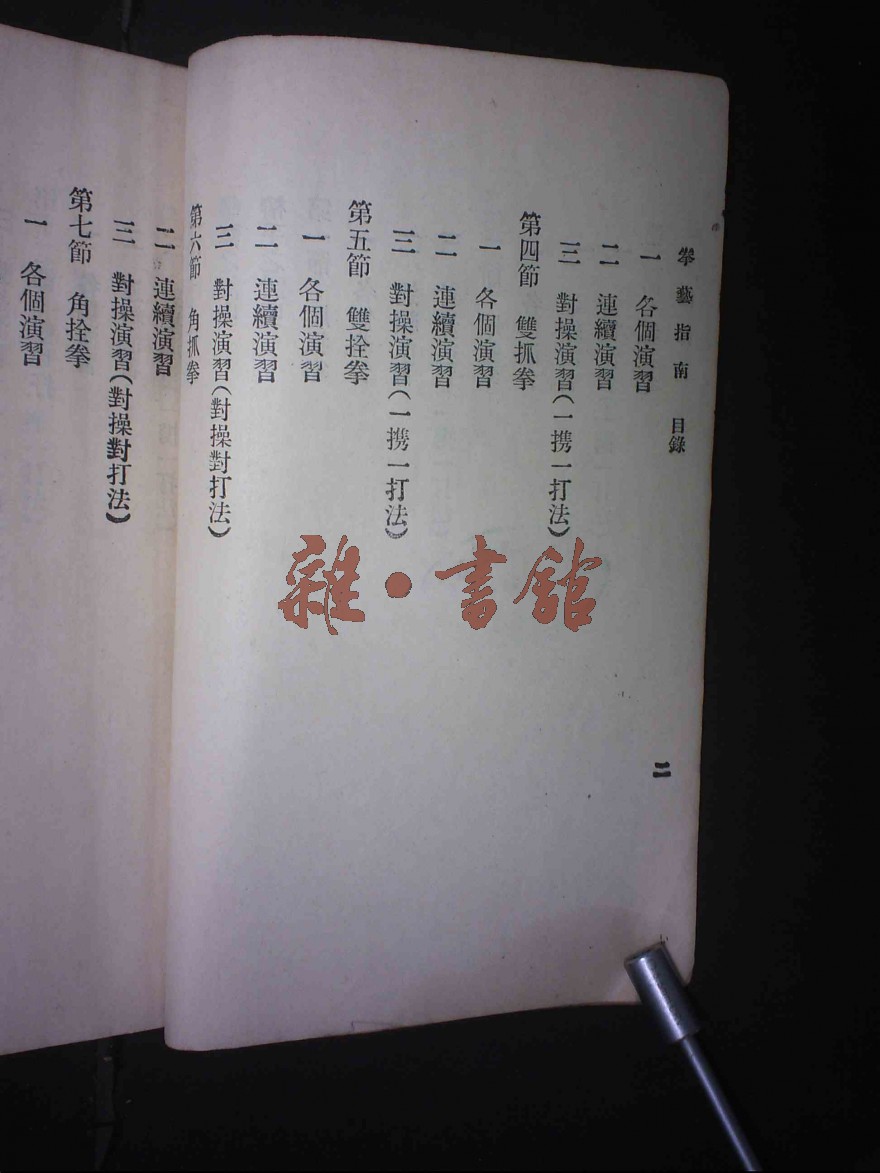 拳藝指南 目錄
一 各個演習
二 連續演習
三 對操演習(一携一打法)
第四節 雙抓拳
一 各個演習
二 連續演習
三 對操演習(一携一打法)
第五節 雙拴拳
一 各個演習
二 連續演習
三 對操演習(對操對打法)
第六節 角抓拳
二 連續演習
三 對操演習(對操對打法)
第七節 角拴拳
一 各個演習
二
雜・書館